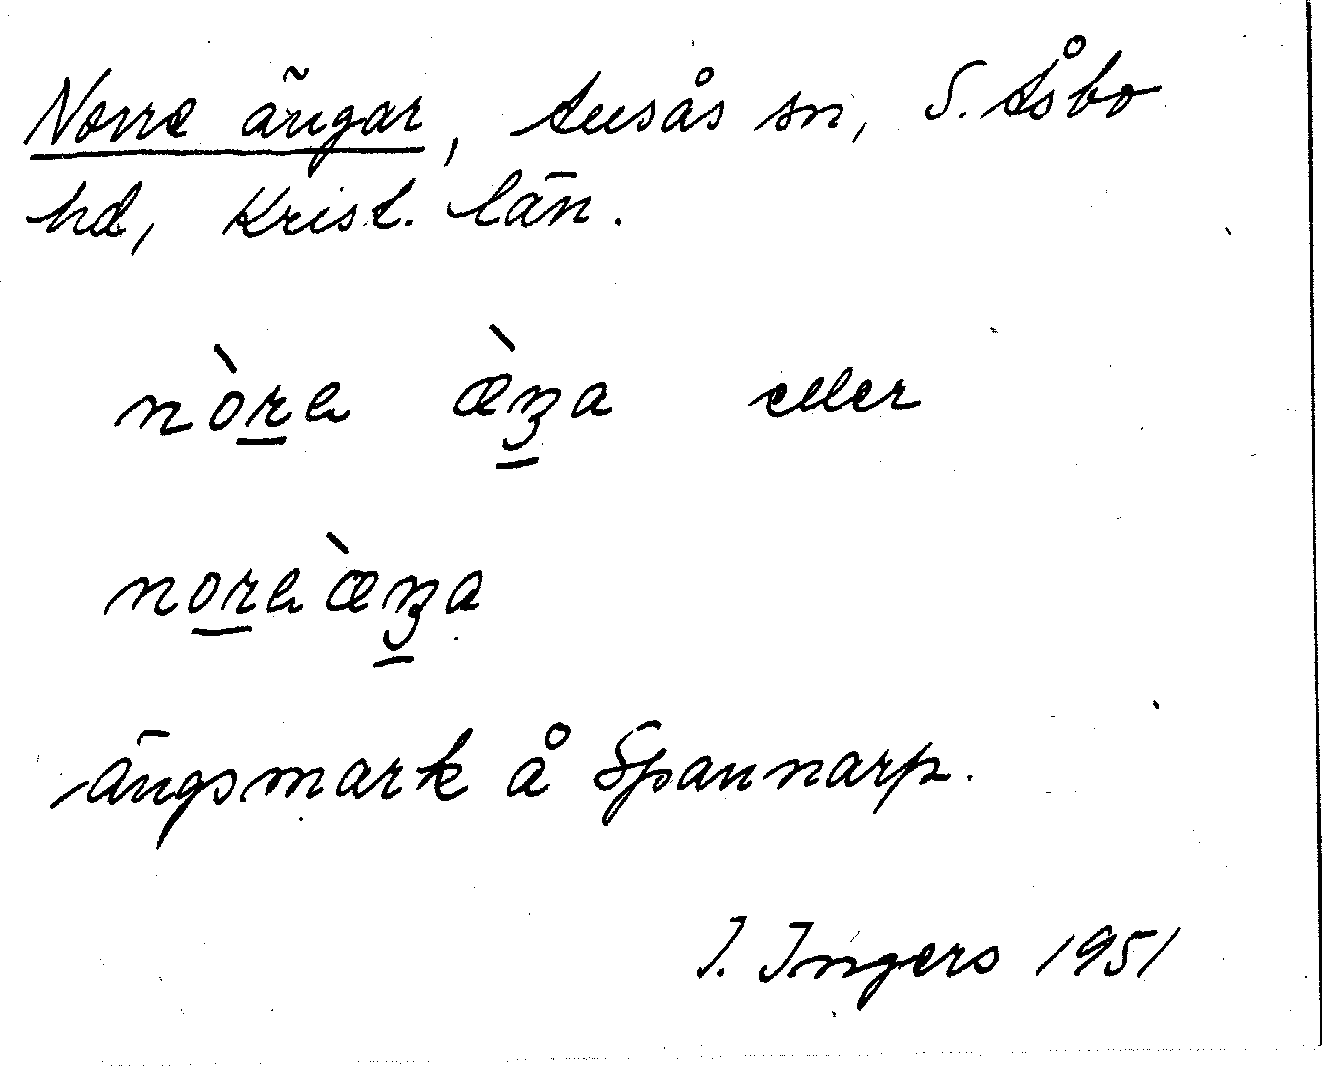 Norre ängar, Ausås sn, S. Åsbo
hd, Krist. län.
nòre æ̀ʒa eller
noreæ̀ʒa
ängsmark å Spannarp.
I. Ingers 1951